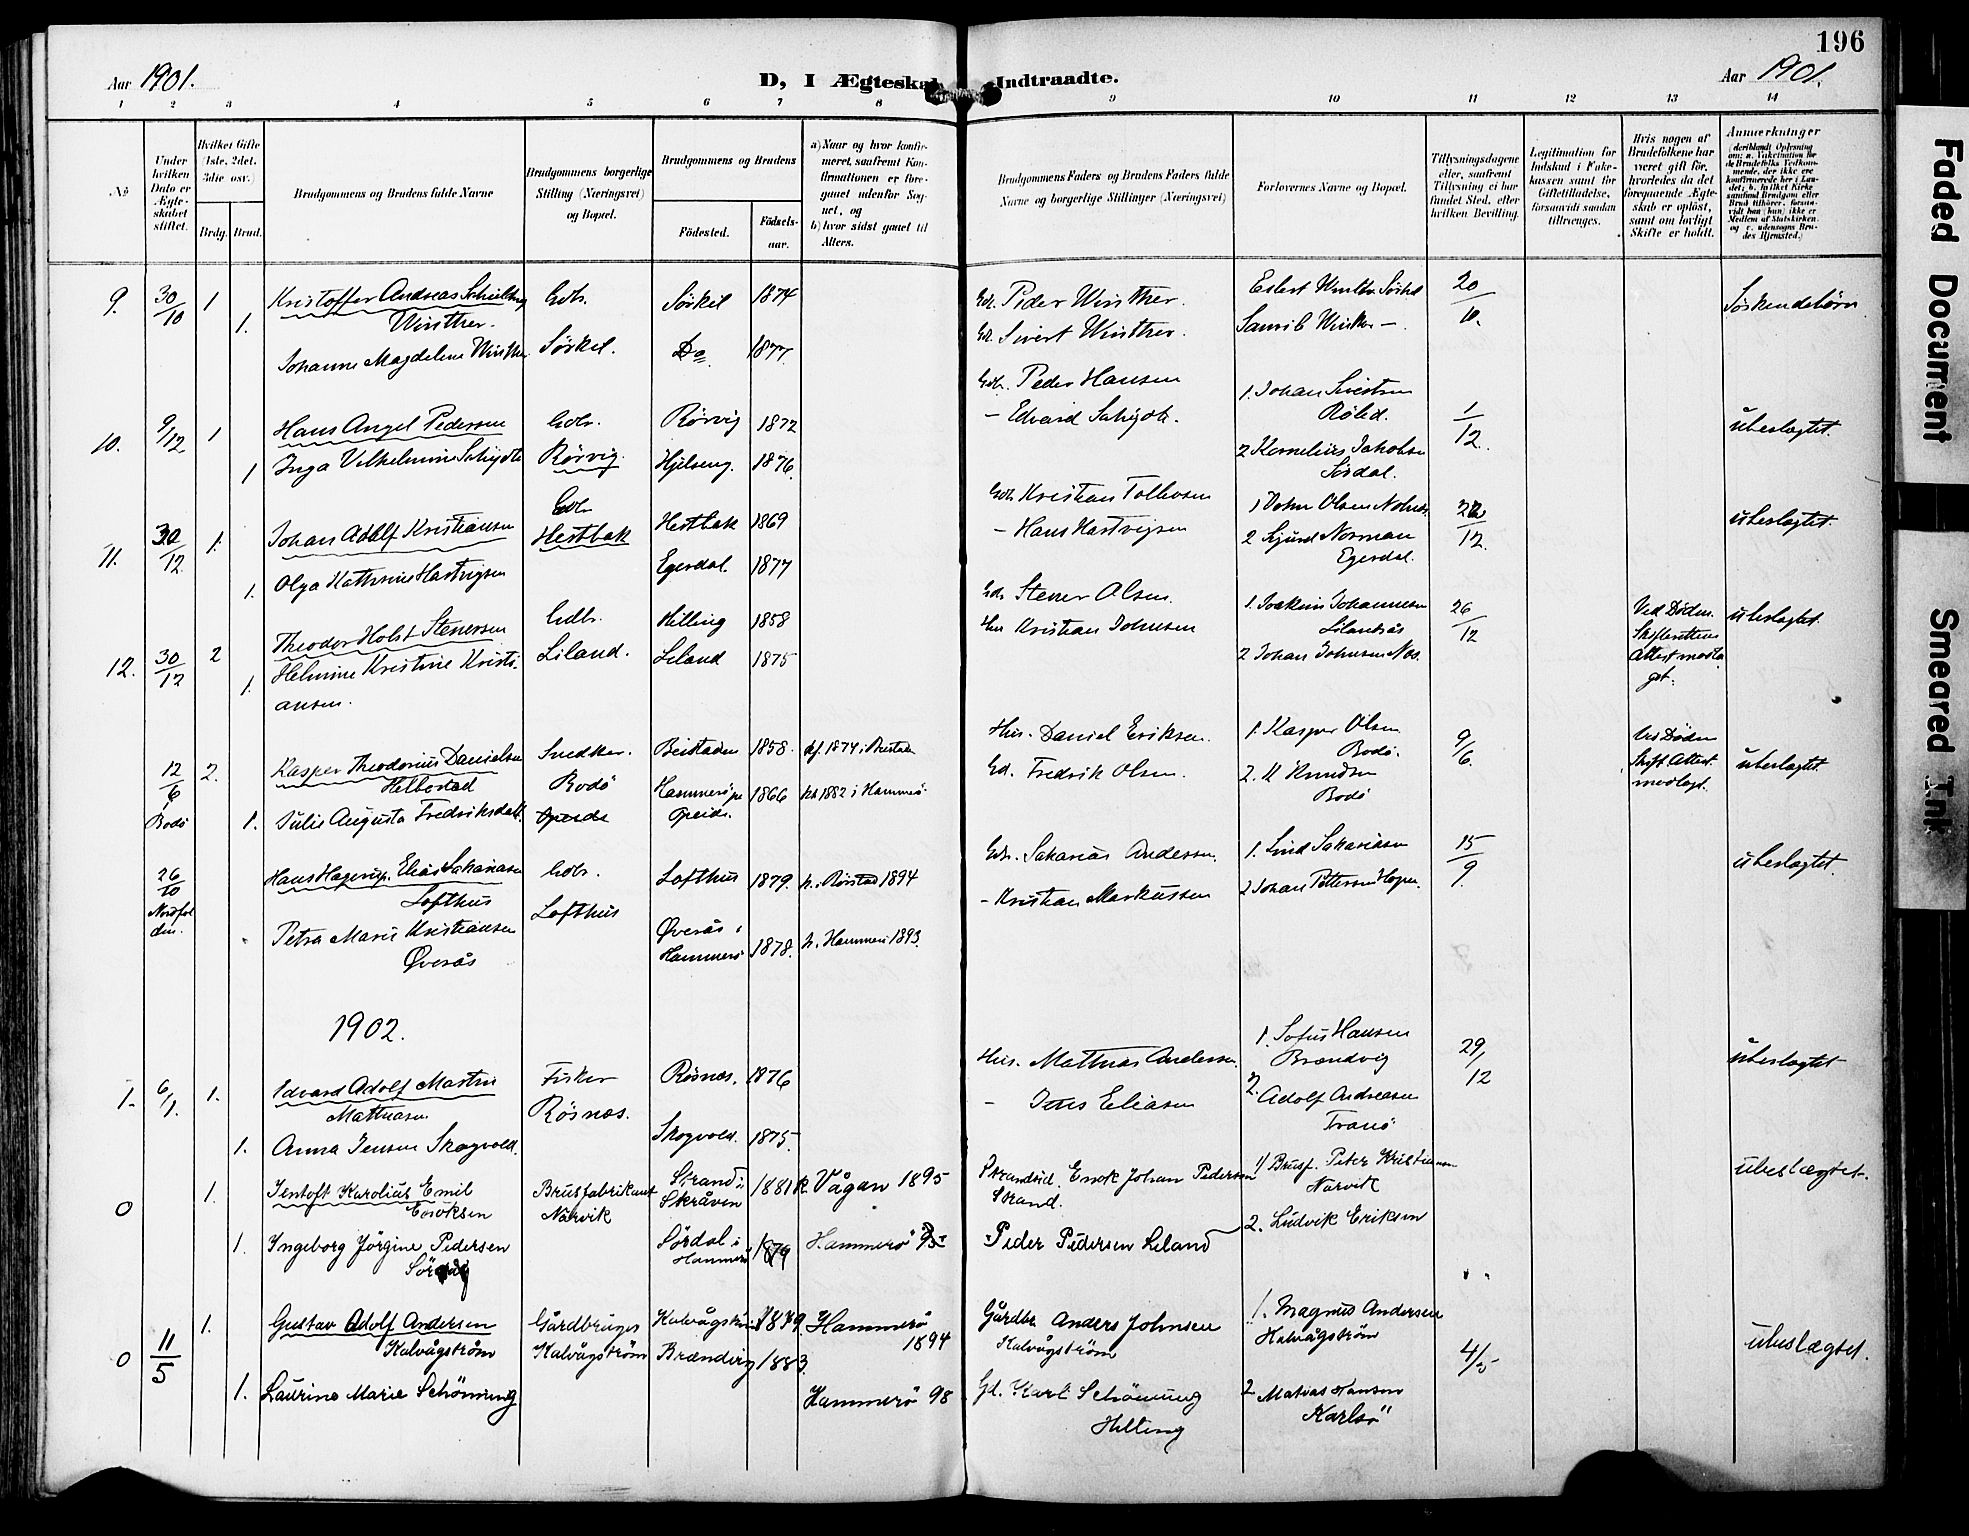 196
Aar 1901.
D, I Ægteskab Indtraadte.
Aar 1901.
1 2 3 4 5 6 7 8 9 10 11 12 13 14
No
Under hvilken Dato er Ægteskabet stiftet.
Hvilket Gifte (1ste, 2det, 3die osv.)
Brdg. Brud.
Brudgommens og Brudens fulde Navne
Brudgommens borgerlige Stilling (Næringsvei) og Bopæl.
Brudgommens og Brudens
Födested.
Födsels-aar.
a) Naar og hvor konfirmeret, saafremt Konfirmationen er foregaaet udenfor Sognet, og
b) hvor sidst gaaet til Alters.
Brudgommens Faders og Brudens Faders fulde Navne og borgerlige Stillinger (Næringsvei)
Forlovernes Navne og Bopæl.
Tillysningsdagene eller, saafremt Tillysning ei har fundet Sted, efter hvilken Bevilling.
Legitimation for Indskud i Enkekassen samt for Giftetilladelse, forsaavidt saadan tiltrænges.
Hvis nogen af Brudefolkene har været gift för, hvorledes da det foregaaende Ægteskab er oplöst, samt om lovligt Skifte er holdt.
Anmerkninger
9. 30/10 1 Kristoffer Andreas
Winther. Gdbr. Sørkil 1874 Gdb. Peder Winther. 20/10. Søskendebørn
1. Johanne Magdelene Winther Sørkil. Do 1877. Gd. Sivert Winther.
10. 9/12 1 Hans Angel Pedersen Gdbr. Rörvig 1872 Gdbr. Peder Hansen 1. Johan Sivertsen 1/12. ubeslægtet.
1 Inga Vilhelmine Rörvig. 1876. - Edvard 2 Kornelius Jakobsen
Sördal.
11. 30/12 1. Johan Adolf Kristiansen Gdbr Hestbak Hestbak 1869 Gdb Kristian Tollevsen 1 Johan Olsen 22/12. ubeslægtet.
1. Olga Kathrine Hartvigsen Egerdal. 1877 - Hans Hartvigsen 2 Sjurd Norman
Egerdal.
12. 30/12 2 Theodor Holst Stenersen Gdbr. Hilling 1858 Gdb Stener Olsen. 1. Joakim Johannesen 26/12 Ved Döden. ubeslægtet.
1. Helmine Kristine Kristiansen. Liland. Liland 1875 Kristian Johnsen 2 Johan Johnsen
12/6 Bodö 2. Kasper Theodorius Danielsen
Helbostad Snedker. Bodö Beistaden 1858. kf. 1874 i Beistad Hus. Daniel Eriksen 1. Kasper Olsen
Bodö. 9/6. ved Döden Skift. Attest medlagt. ubeslægtet.
1. Julie Augusta Fredriksdatt. 1866 kf. 1882 i Hammerö Gd. Fredrik Olsen. 2. K Knudsen
Bodö
26/10 Nordfolden. Hans Hagerup Elias Sakariasen
Lofthus Gdbr. Lofthus Lofthus 1879. k. Rørstad 1894 Gdb. Sakarias Andersen. 1. Sakariasen 15/9. ubeslægtet.
Petra Marie Kristiansen
Øverås Øverås i Hammerö 1878. k. Hammerö 1893. - Kristian Markussen 2 Johan Pettersen
1902.
1. 6/1. 1. Edvard Adolf Martin
Mathiasen. Fisker Rösnæs. Rösnæs. 1876 Hus. Mathias Andersen. 1. Sofus Hansen
Brændvig 29/12 ubeslægtet
1. Anna Jensen Skogvold. Skogvold. 1875. - Jens Eliasen 2. Adolf Andreasen
Tranö
0 1. Jentoft Karolius Emil
Enoksen Brusfabrikant Narvik Strand i Skråven 1881 k. Vågan 1895 Strandsid. Enok Johan Pedersen
Strand. 1/ Brusf. Peter Kristiansen
Narvik ubeslægtet.
1. Ingeborg Jörgine Pedersen Sördal i Hammerö 1879 Hammerö 95 Peder Pedersen Leland 2. Ludvik Eriksen
0 11/5 1. Gustav Adolf Andersen
Kalvågström Gårdbruger Kalvågström 1879 Hammerö
1894 Gårdbr. Anders Johnsen
Kalvågström 1. Magnus Andersen
Kalvågström 4/5 ubeslægtet.
1. Laurine Marie Schönning Kalvågström Brændvig 1883. Hammerö 98 Gd. Karl Schönning
Hilling 2 Matias Hansen
Karlsö
Faded Document
Smeared Ink